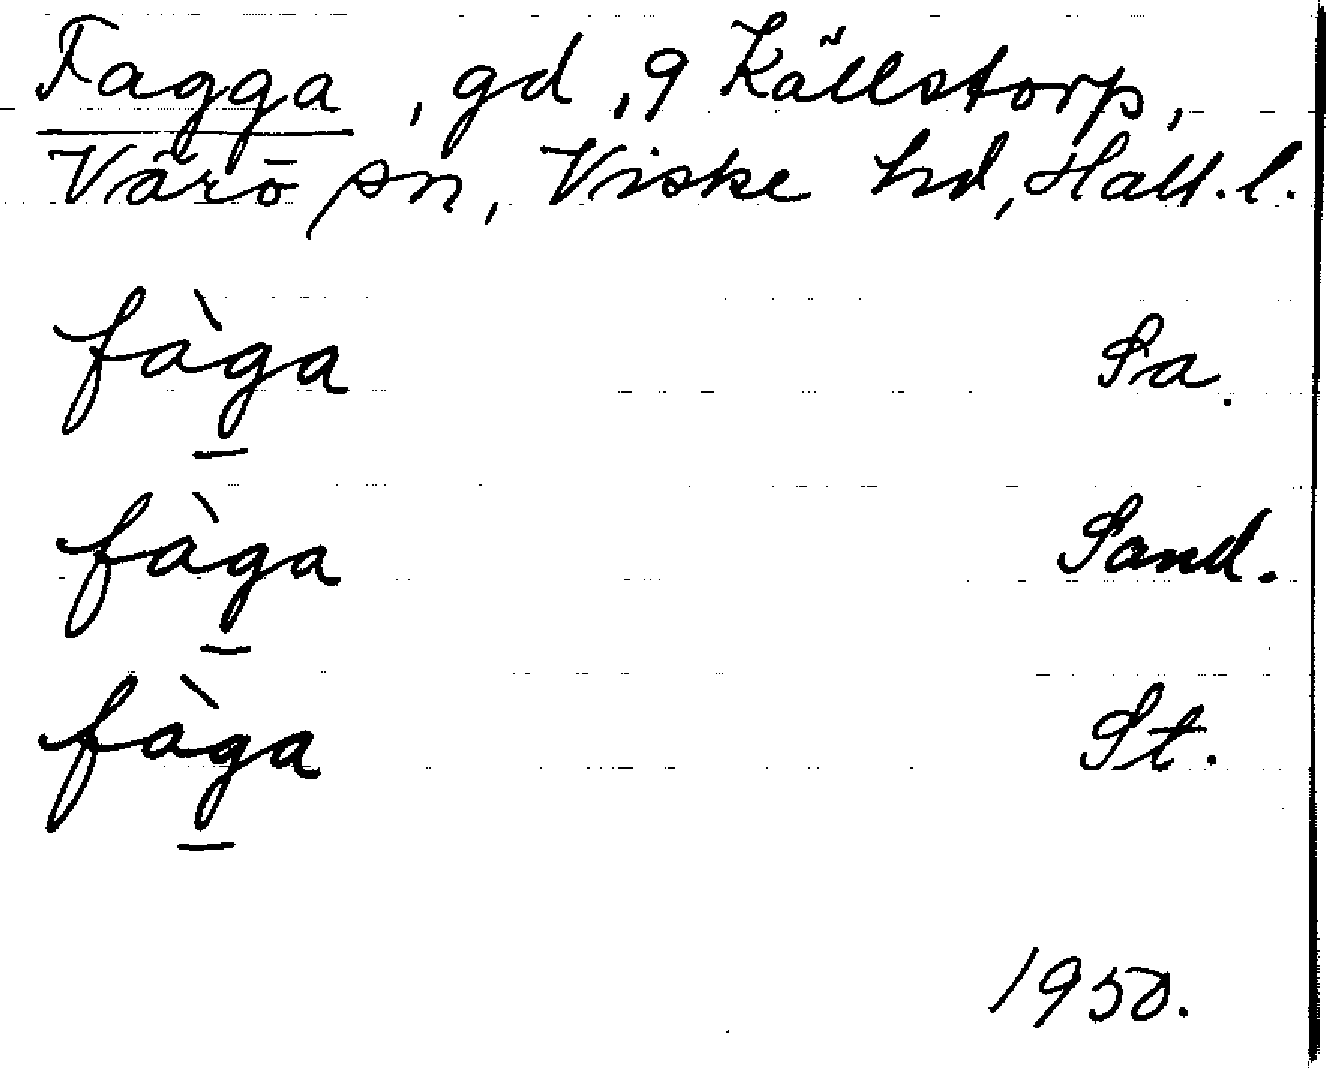 Fagga, gd, 9 Källstorp,
Värö sn, Viske hd, Hall. l.
fàg̲a Sa.
fàg̲a Sand.
fàg̲a St.
1950.